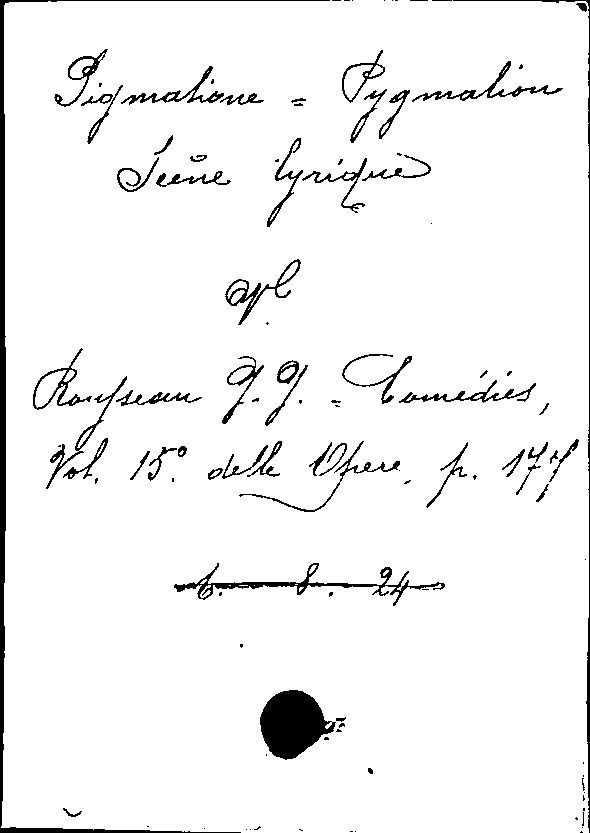 Pigmalione = Pygmalion
Scène lyrique
Rousseau J. J. = Comédies,
Vol. 15º. delle Opere. p. 177
6. 8. 24